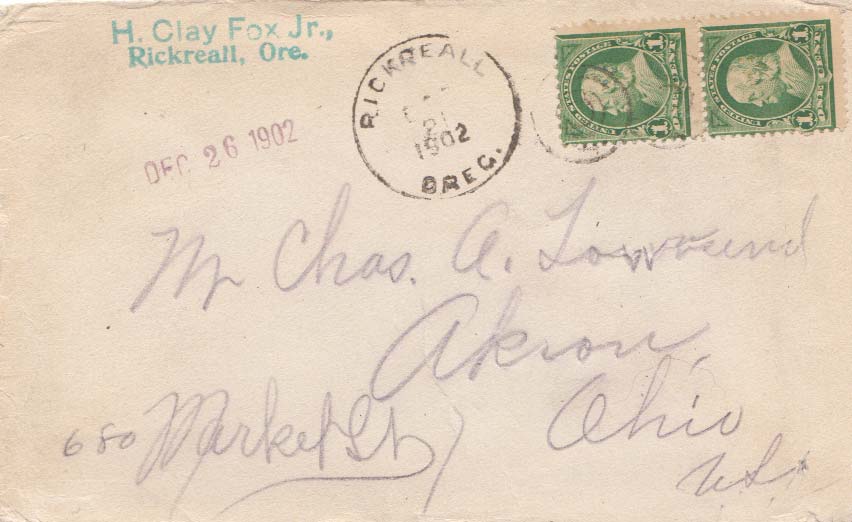 H. Clay Fox Jr.,
Rickreall, Ore.
RICKREALL
21
1902
OREG.
DEC 26 1902
UNITED STATES POSTAGE
1 ONE 1
UNITED STATES POSTAGE
1 ONE 1
Mr Chas. A.
Akron,
680 Market St
Ohio
U.S.